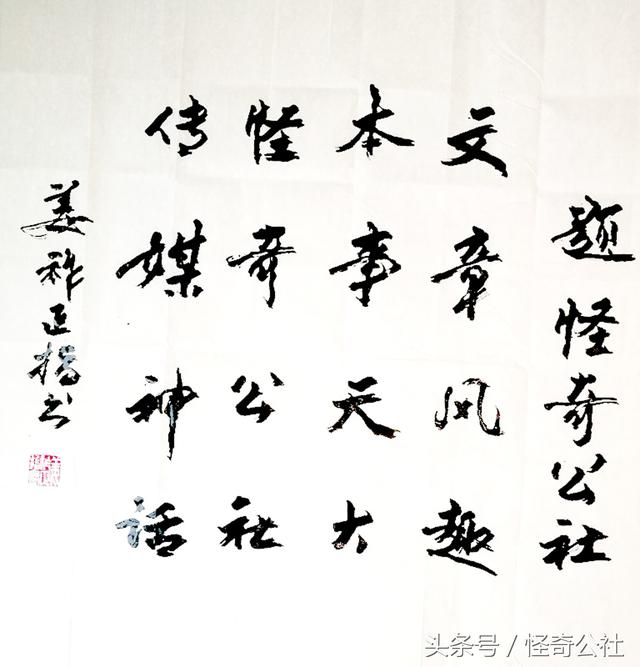 题怪奇公社
文章风趣
本事天大
怪奇公社
传媒神话
姜祚正撰书
头条号 / 怪奇公社